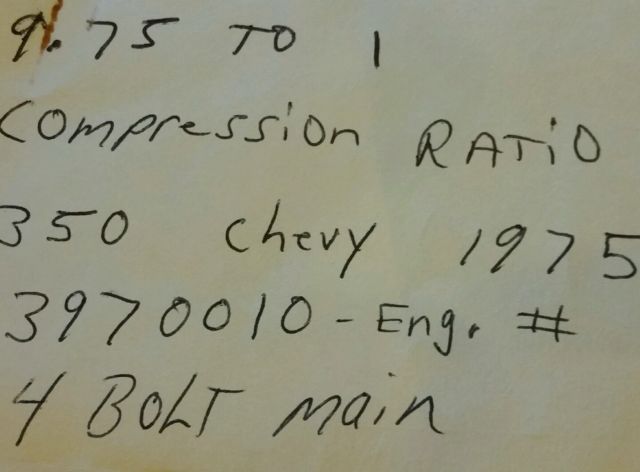 9.75 TO 1
Compression RATiO
350 Chevy 1975
3970010 - Eng. #
4 BOLT main